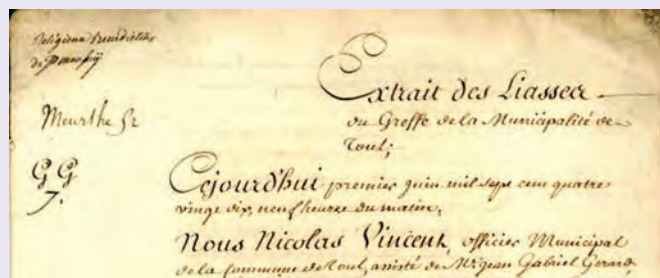 Religieux Bénédictins
de St mansuy
Meurthe 52
GG
7.
Extrait des Liasses
du Greffe de la Municipalité de
Toul;
Cejourd'hui premier juin mil sept cent quatre
vingt dix, neuf heures du matin,
Nous Nicolas Vincent, officier Municipal
de la commune de Toul, assisté de Me jean Gabriel Gerard,